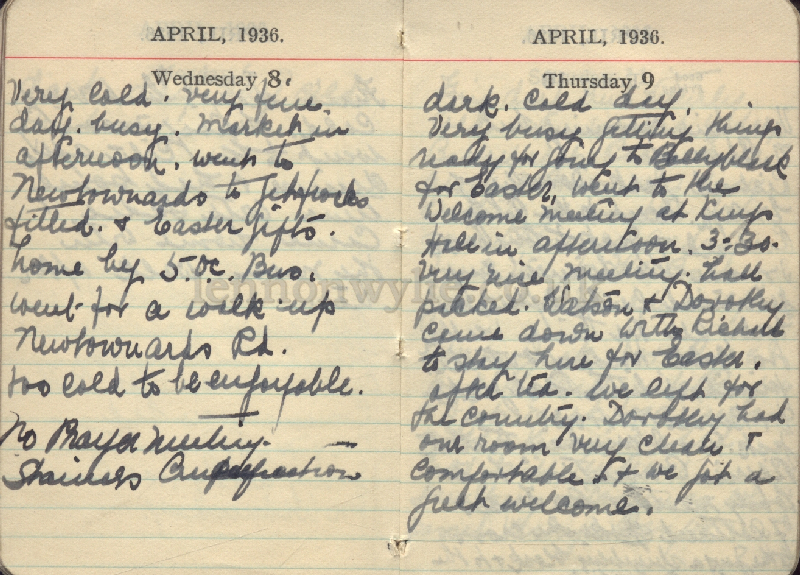 APRIL, 1936.
Wednesday 8.
Very Cold. very fine
day. busy. Market in
afternoon. went to
Newtownards to get frocks
fitted. & Easter gifts.
home by 5.oc. Bus.
went for a walk up
Newtownards Rd.
too cold to be enjoyable.
No Prayer Meeting.
APRIL, 1936.
Thursday 9
dark. cold day.
Very busy getting things
ready for going to Ballyblack
for Easter, went to the
Welcome meeting at Kings
Hall in afternoon. 3-30.
Very nice meeting. hall
packed. Watson & Dorothy
came down with Richard
to stay here for Easter.
after tea. we left for
the country. Dorothy had
our room very clean &
comfortable & we got a
great welcome.
lennonwylie.co.uk